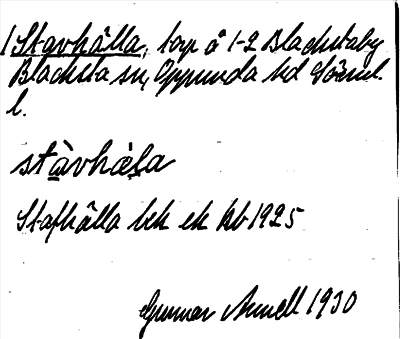 1 Stavhälla, torp å 1-2 Blackstaby
Blacksta sn, Oppunda hd Söderml.
l.
stàvhàla
Stafhälla bek ek kb 1925
Gunnar Annell 1930